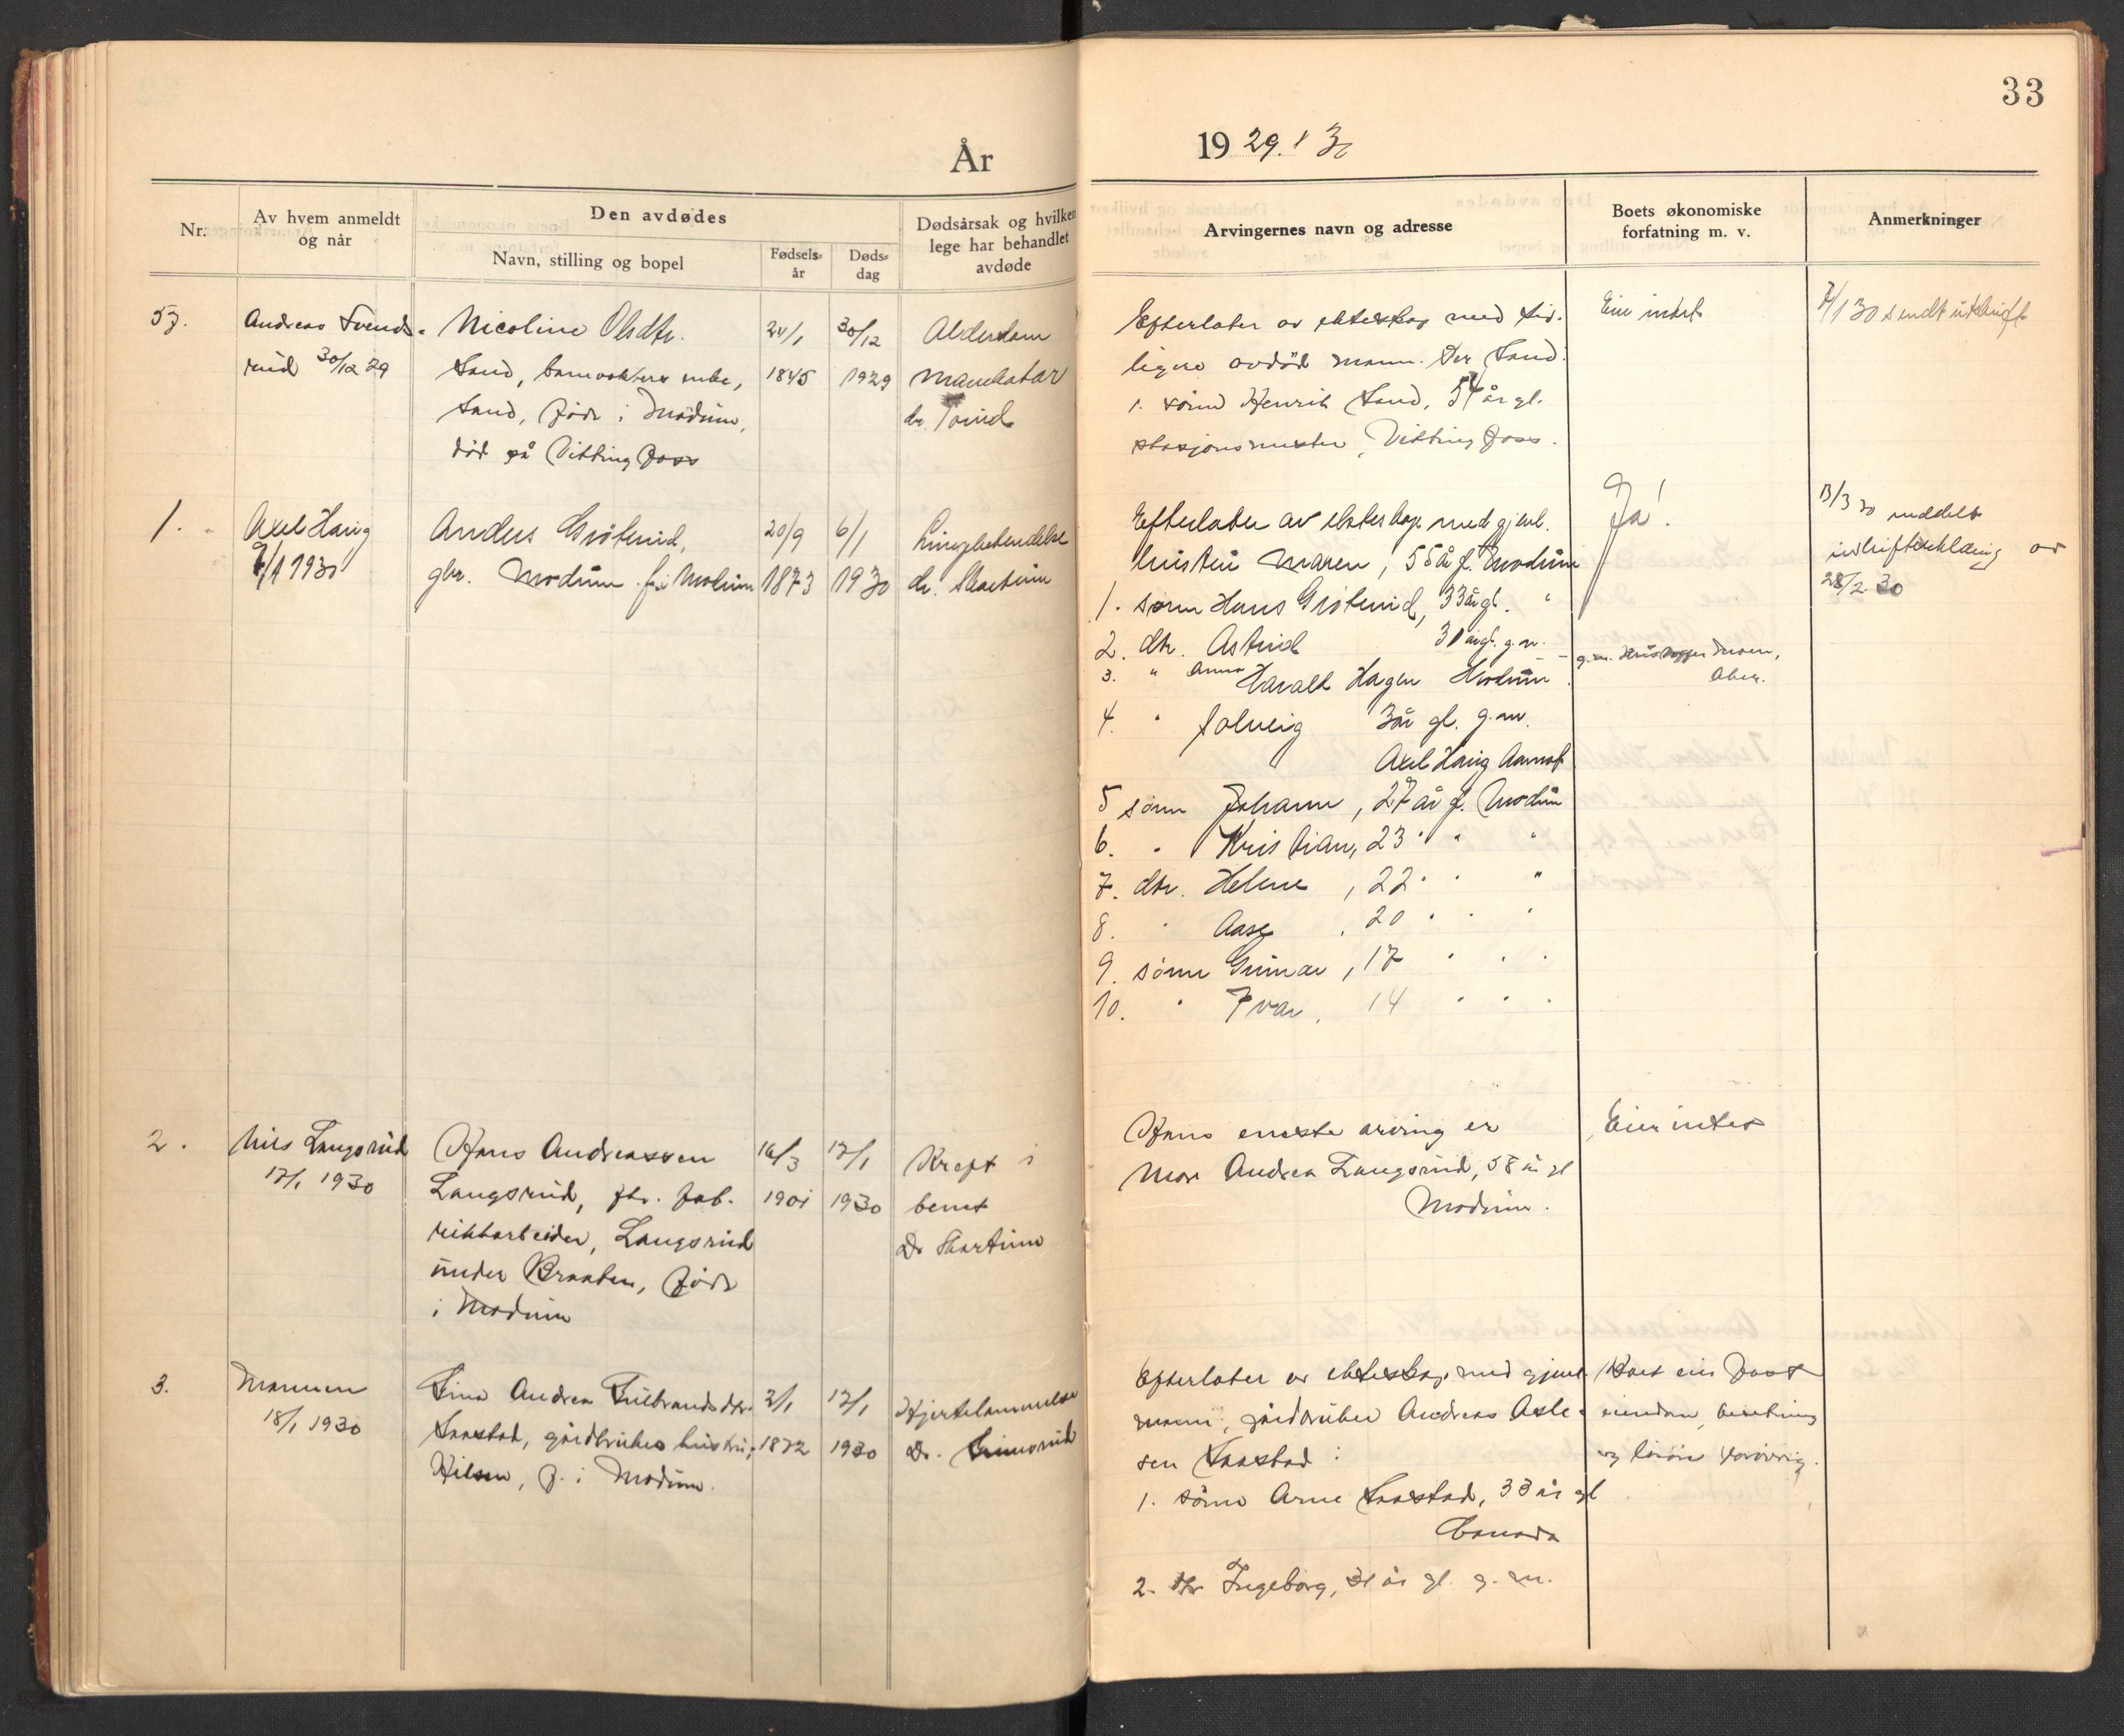 33
År
19 29. / 30
Nr.
Av hvem anmeldt
og når
Den avdødes
Navn, stilling og bopel
Fødsels-
år
Døds-
dag
Dødsårsak og hvilken
lege har behandlet
avdøde
Arvingernes navn og adresse
Boets økonomiske
forfatning m. v.
Anmerkninger
57.
Andreas Svends-
rud 30/12 29
Nicoline Olsdtr.
Sand, banevokters enke,
Sand, født i Modum,
død på Vikting foss
1845
30/12
1929
Alderdom
Marekatar
dr.
Efterlater av ekteskap med tid-
ligere avdød mann. Sand:
1. sønn Henrik Sand, 54 år gl.
stasjonsmester, Vikting foss.
Eier intet
7/1 30 sendt utskrift
1.
Axel Haug
9/1 1930
Anders Grøterud,
gbr. Modum f. i Modum
20/9
1873
6/1
1930
Lungebetendelse
dr. Skartum
Efterlater av ekteskap med gjenl.
hustru Maren, 55 år g. Modum
1. sønn Hans Grøterud, 33 år gl. "
2. dtr. Astrid 31 år gl. g.m.
3. " Anna Harald Hagen Modum
4. " Solveig 3 år gl. g.m.
Axel Haug Aamot
5 sønn Johann, 27 år g. Modum
6. " Kristian, 23 " " "
7. dtr. Helene, 22 " " "
8. " Aase, 20 " " "
9. sønn Gunnar, 17 " " "
10. " Ivar, 14 " " "
Ja!
g.m. Moen,
13/3 30 meddelt
skifteerklæring av
28/2 30
2.
Nils Langsrud
17/1 1930
Hans Andreassen
Langsrud, fhv. fab-
rikkarbeider, Langsrud
under Braaten, født
i Modum
16/3
1901
17/1
1930
Kreft i
benet
Dr Skartum
Hans eneste arving er
Mor Andrea Langsrud, 58 år gl
Modum.
Eier intet
3.
Mannen
18/1 1930
Lina Andrea Gulbrandsdtr.
Saastad, gårdbrukers hustru,
Hilsen, f. i Modum.
2/1
1872
17/1
1930
Hjertelammelse
Dr.
Efterlater av ekteskap med gjenl.
mann, gårdbruker Andreas Asle-
sen Saastad:
1. sønn Arne Saastad, 33 år gl
Canada
2. dtr Ingeborg, 31 år gl. g. m.
Boet eier fast
eiendom, besetning
og løsøre forøvrig.